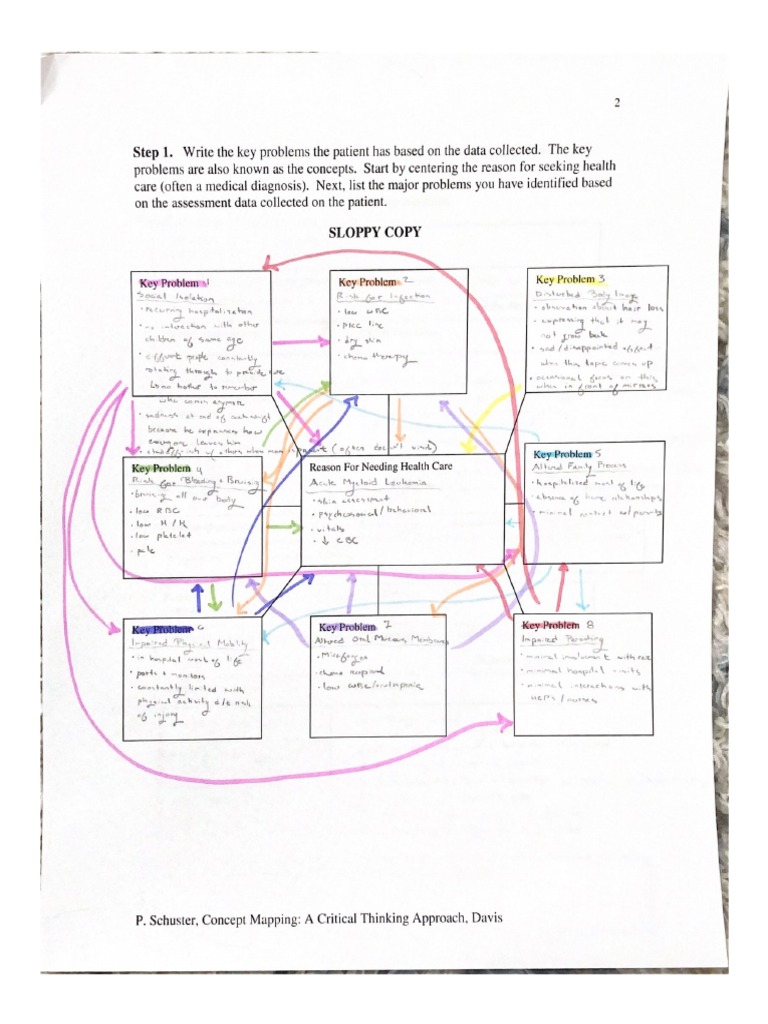 2
Step 1. Write the key problems the patient has based on the data collected. The key
problems are also known as the concepts. Start by centering the reason for seeking health
care (often a medical diagnosis). Next, list the major problems you have identified based
on the assessment data collected on the patient.
SLOPPY COPY
Key Problem 1
Social Isolation
• recurring hospitalization
• no interaction with other
children of same age
• different people constantly
rotating through to provide care
↳ no bother to remember
who comes anymore
• sadness at end of
because he expresses how
everyone leaves him
of others when mom is present (often doesn't visit)
Key Problem 2
Risk for Infection
• low WBC
• PICC line
• dry skin
• chemotherapy
Key Problem 3
Disturbed Body Image
• observation about hair loss
• expressing that it may
not grow back
• sad/disappointed affect
when this topic comes up
• occasional focus on this
when in front of mirrors
Key Problem 4
Risk for Bleeding + Bruising
• bruising all over body
• low RBC
• low H/H
• low platelet
• pale
Reason For Needing Health Care
Acute Myeloid Leukemia
• skin assessment
• psychosocial/behavioral
• vitals
• ↓ CBC
Key Problem 5
Altered Family Process
• hospitalized most of life
• absence of home relationships
• minimal contact w/parents
Key Problem 6
Impaired Physical Mobility
• in hospital most of life
• ports + monitors
• constantly limited with
physical activity d/t risk
of injury
Key Problem 7
Altered Oral Mucous Membrane
• chemo
• low WBC/neutropenic
Key Problem 8
Impaired Parenting
• minimal involvement with care
• minimal hospital visits
• minimal interactions with
HCPs / nurses
P. Schuster, Concept Mapping: A Critical Thinking Approach, Davis